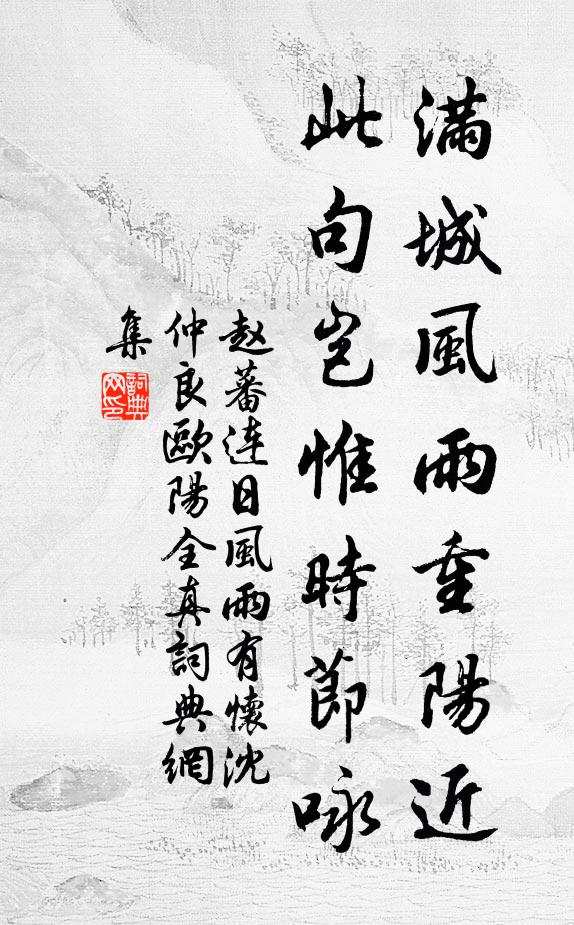 滿城風雨重陽近
此句岂惟時節咏
赵蕃连日風雨有懷沈
仲良歐陽全真詞典網
集
詞典
网印